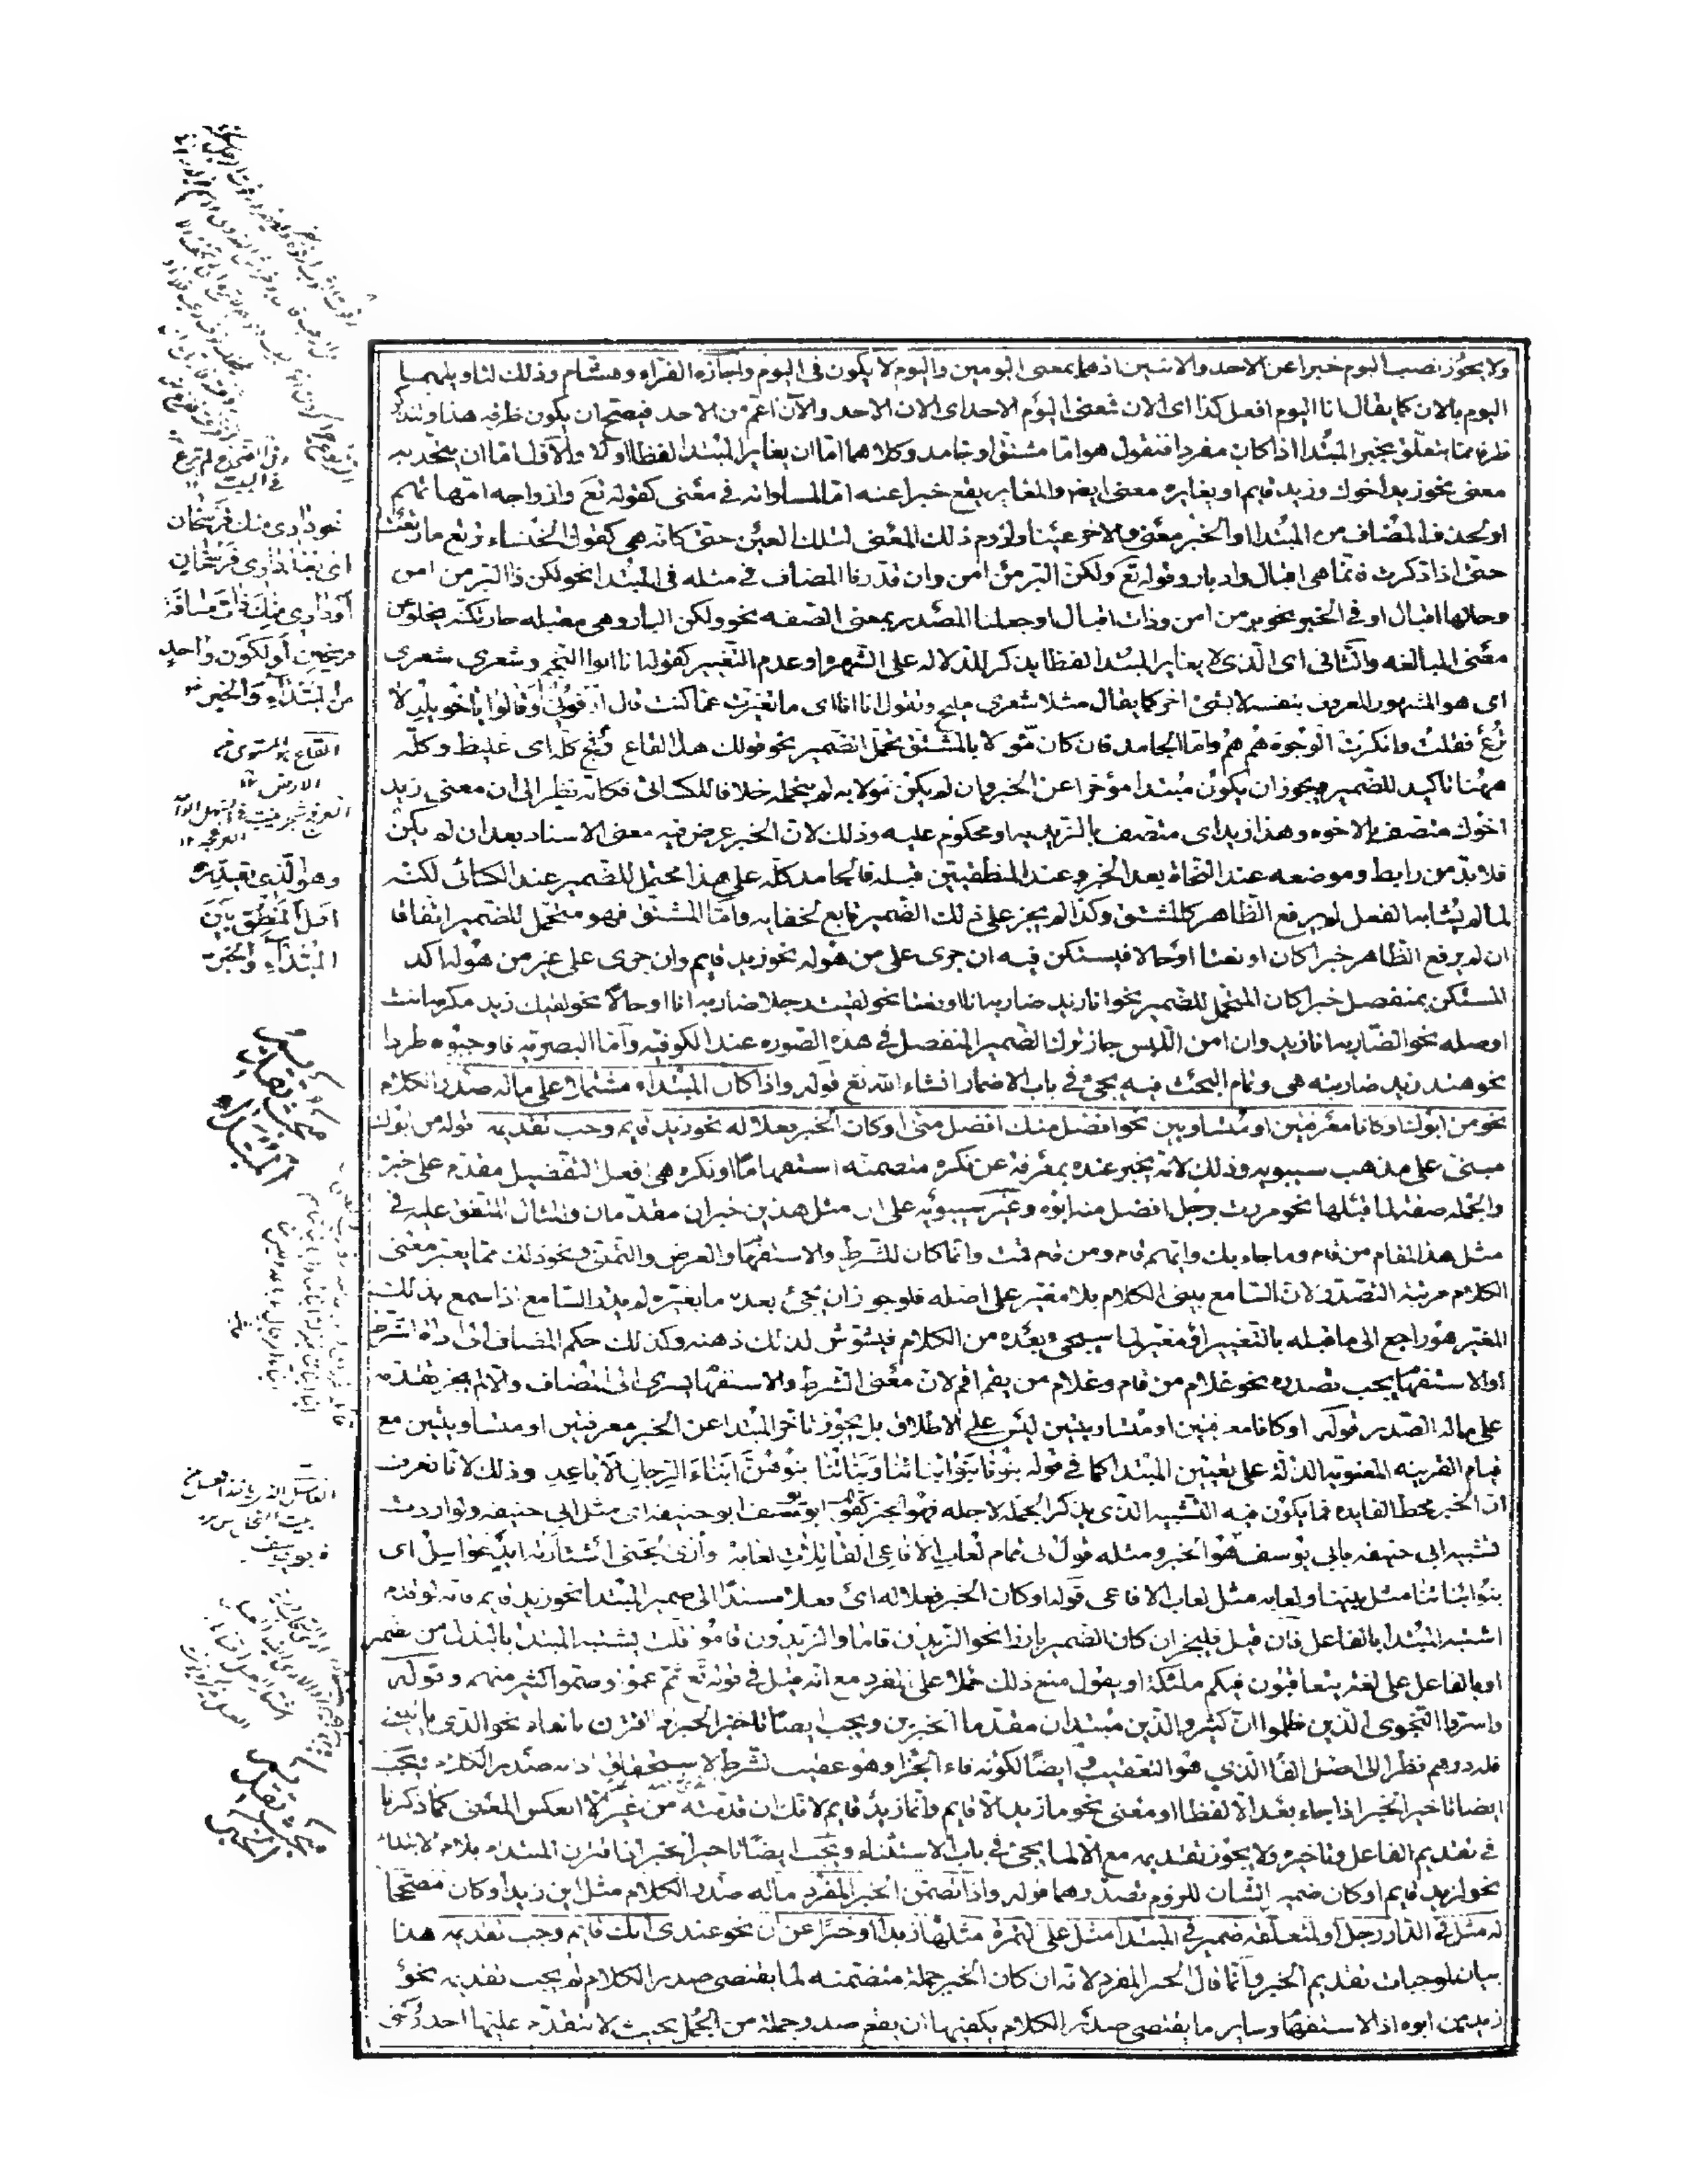 ولا يجوز نصب اليوم خبرا عن الاحد والاثنين اذ هما بمعنى اليومين واليوم لا يكون فى اليوم واجازه الفراء وهشام وذلك لتاويلهما
اليوم بالان كما يقال انا اليوم افعل كذا اى الان فمعنى اليوم الاحد اى الان الاحد والآن اعم من الاحد فيصح ان يكون ظرفه هذا ونذكر
طرفا مما يتعلق بخبر المبتدا اذا كان مفردا فنقول هو اما مشتق او جامد وكلاهما اما ان يغاير المبتدا لفظا اولا والاول اما ان يتحد به
معنى نحو زيد اخوك وزيد قايم او يغايره معنى ايضا والمغاير يقع خبرا عنه اما لمساواته فى معنى كقوله تع وازواجه امهاتهم
او لحذف المضاف من المبتدا او الخبر معنى والاخر عينا ولزوم ذلك المعنى لتلك العين حتى كانه هى كقول الخنساء ترتع ما رتعت
حتى اذا ذكرت فانما هى اقبال وادبار وقوله تع ولكن البر من امن وان قدرنا المضاف فى مثله فى المبتدا نحو لكن ذا البر من امن
وحالها اقبال او فى الخبر نحو بر من امن وذات اقبال او جعلنا المصدر بمعنى الصفه نحو ولكن البار وهى مقبله جاز لكنه يخلو عن
معنى المبالغه والثانى اى الذى لا يغاير المبتدا لفظا يذكر للدلاله على الشهره او عدم التغيير كقوله انا ابو النجم وشعرى شعرى
اى هو المشهور المعروف بنفسه لا بشئ اخر كما يقال مثلا شعرى مليح وتقول انا انا اى ما تغيرت عما كنت قال رفونى وقالوا يا خويلد لا
ترع فقلت وانكرت الوجوه هم هم واما الجامد فان كان مؤولا بالمشتق تحمل الضمير نحو قولك هذا القاع عرفج كله اى غليظ وكله
ههنا تاكيد للضمير ويجوز ان يكون مبتدا مؤخرا عن الخبر وان لم يكن مؤولا به لم يتحمله خلافا للكسائى فكانه نظر الى ان معنى زيد
اخوك متصف بالاخوه وهذا زيد اى متصف بالزيديه او محكوم عليه وذلك لان الخبر عرض فيه معنى الاسناد بعد ان لم يكن
فلا بد من رابط وموضعه عند النحاة بعد الخبر وعند المنطقيين قبله فالجامد كله على هذا محتمل للضمير عند الكسائى لكنه
لما لم يشابه الفعل لم يرفع الظاهر كالمشتق وكذا لم يجز على ذلك الضمير تابع لخفايه واما المشتق فهو متحمل للضمير اتفاقا
ان لم يرفع الظاهر خبرا كان او نعتا او حالا فيستكن فيه ان جرى على من هو له نحو زيد قايم وان جرى على غير من هو له اكد
المستكن بمنفصل خبرا كان المتحمل للضمير نحو انا زيد ضاربه انا او نعتا نحو لقيت رجلا ضاربه انا او حالا نحو لقيك زيد مكرمه انت
او صله نحو الضاربه انا زيد وان امن اللبس جاز ترك الضمير المنفصل فى هذه الصوره عند الكوفيه واما البصريه فاوجبوه طردا
نحو هند زيد ضاربته هى وتمام البحث فيه يجئ فى باب الاضمار انشاء الله تع قوله واذا كان المبتداء مشتملا على ماله صدر الكلام
نحو من ابوك او كانا معرفتين او متساويين نحو افضل منك افضل منى او كان الخبر فعلا له نحو زيد قام وجب تقديمه قوله من ابوك
مبنى على مذهب سيبويه وذلك لانه يخبر عنده بمعرفة عن نكره متضمنه استفهاما او نكره هى افعل التفضيل مقدم على خبره
والجمله صفة لما قبلها نحو مررت برجل افضل منه ابوه وغير سيبويه على ان مثل هذين خبران مقدمان والمثال المتفق عليه فى
مثل هذا المقام من قام وما جاء بك وايهم قام ومن قام قمت وانما كان للشرط والاستفهام والعرض والتمنى ونحو ذلك مما يغير معنى
الكلام مرتبة التصدر لان السامع يبنى الكلام بلا مغير على اصله فلو جوز ان يجئ بعده ما يغيره لم يدر السامع اذا سمع بذلك
المغير هو راجع الى ما قبله بالتغيير او مغير لما سيجئ بعده من الكلام فيتشوش لذلك ذهنه وكذلك حكم المضاف الى اداة الشرط
او الاستفهام يجب تصدره نحو غلام من قام وغلام من يقم اقم لان معنى الشرط والاستفهام يسرى الى المضاف والا لم يجز تقدمه
على ماله الصدر قوله او كانا معرفتين او متساويتين ليس على الاطلاق بل يجوز تاخر المبتدا عن الخبر معرفتين او متساويتين مع
قيام القرينه المعنويه الدالة على تعيين المبتدا كما فى قوله بنونا بنو ابنائنا وبناتنا بنوهن ابناء الرجال الاباعد وذلك لانا نعرف
ان الخبر محط الفايده فما يكون فيه التشبيه الذى يذكر الجمله لاجله فهو الخبر كقولك ابو يوسف ابو حنيفه اى مثل ابى حنيفه ولو اردت
تشبيه ابى حنيفه بابى يوسف فهو الخبر ومثله قول ابى تمام لعاب الافاعى القاتلات لعابه وارى الجنى اشتارته ايد عواسل اى
بنو ابنائنا مثل بنينا ولعابه مثل لعاب الافاعى قوله او كان الخبر فعلا له اى فعلا مسندا الى ضمير المبتدا نحو زيد قام فانه لو قدم
اشتبه المبتدا بالفاعل فان قيل فليجز ان كان الضمير بارزا نحو الزيدان قاما والزيدون قاموا قلت يشتبه المبتدا بالبدل من ضمير
او بالفاعل على لغة يتعاقبون فيكم ملئكة او يقول منع ذلك حملا على المفرد مع انه قيل فى قوله تع ثم عموا وصموا كثير منهم وقوله
واسروا النجوى الذين ظلموا ان كثير والذين مبتدان مقدما الخبرين ويجب ايضا تاخير الخبر اذا اقترن بالفاء نحو الذى ياتينى
فله درهم نظرا الى اصل الفاء الذى هو التعقيب وايضا لكونه فاء الجزا وهو عقيب الشرط لاستحقاق اداته صدر الكلام ويجب
ايضا تاخير الخبر اذا جاء بعد الا لفظا او معنى نحو ما زيد الا قايم وانما زيد قايم لانك ان قدمته من غير الا انعكس المعنى كما ذكرنا
فى تقديم الفاعل وتاخيره ولا يجوز تقديمه مع الا لما يجئ فى باب الاستثناء ويجب ايضا تاخير الخبر اذا اقترن المبتداء بلام الابتداء
نحو لزيد قايم او كان ضمير الشان للزوم تصدرهما قوله واذا تضمن الخبر المفرد ماله صدر الكلام مثل اين زيد او كان مصححا
له مثل فى الدار رجل او لمتعلقه ضمير فى المبتدا مثل على التمرة مثلها زبدا او خبرا عن ان نحو عندى انك قايم وجب تقديمه هذا
بيان لموجبات تقديم الخبر وانما قال الخبر المفرد لانه ان كان الخبر جملة متضمنه لما يقتضى صدر الكلام لم يجب تقديمه نحو
زيد من ابوه اذ الاستفهام وساير ما يقتضى صدر الكلام يكفيها ان يقع صدر جملة من الجمل بحيث لا يتقدم عليها احد ركنى
خو دارى منك فرسخان
اى بعد دارى فرسخان
او دارى منك ذات مسافة
فرسخين اولكون واحد
من المبتداء والخبر
القاع المستوى من
الارض
وهو الذى يعبر به
اهل المنطق بين
المبتداء والخبر
مبحث تقديم
المبتداء
مبحث تقديم
الخبر